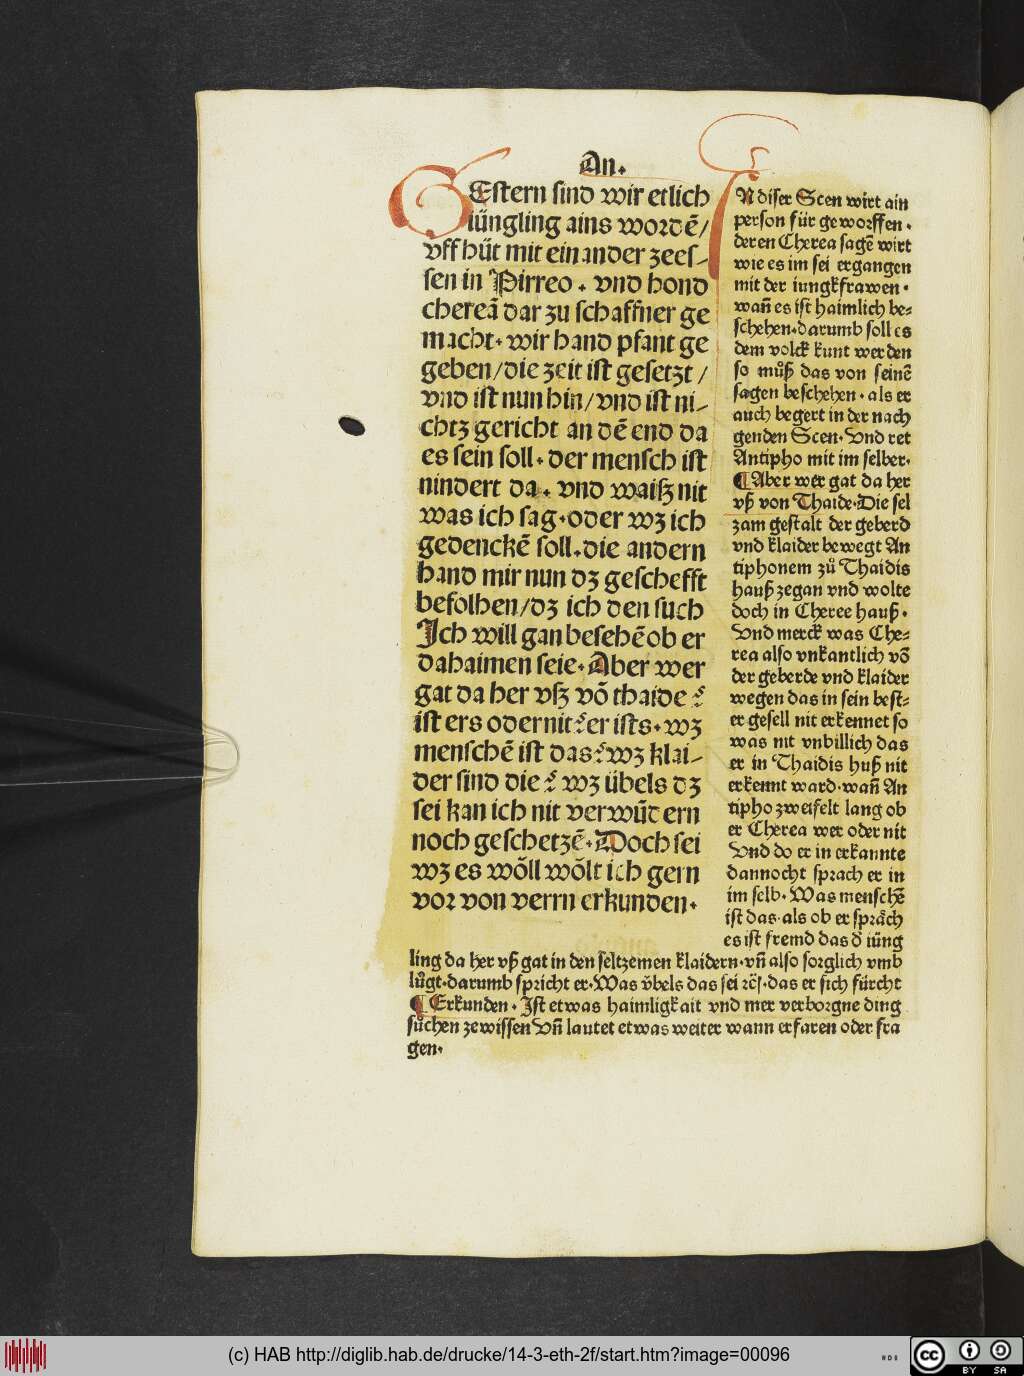 An.
GEstern sind wir etlich
iüngling ains wordē/
vff hüt mit ein ander zees-
sen in Pirreo . vnd hond
chereā dar zu schaffner ge
macht. wir hand pfant ge
geben/die zeit ist gesetzt /
vnd ist nun hin/vnd ist ni-
chtz gericht an dē end da
es sein soll. der mensch ist
nindert da. vnd waiß nit
was ich sag.oder wz ich
gedenckē soll.die andern
hand mir nun dz geschefft
befolhen/dz ich den such
Ich will gan besehē ob er
dahaimen seie. Aber wer
gat da her vß vō thaide ?
ist ers oder nit?er ists. wz
menschē ist das?wz klai-
der sind die ? wz übels dz
sei kan ich nit verwūdern
noch geschetzē. Doch sei
wz es wöll wölt ich gern
vor von verrn erkunden.
IN diser Scen wirt ain
person für geworffen.
deren Cherea sagē wirt
wie es im sei ergangen
mit der iungkfrawen.
wañ es ist haimlich be-
schehen.darumb soll es
dem volck kunt werden
so můß das von seinē
sagen beschehen. als er
auch begert in der nach
genden Scen. Vnd ret
Antipho mit im selber.
¶ Aber wer gat da her
vß von Thaide.Die sel
zam gestalt der geberd
vnd klaider bewegt An
tiphonem zů Thaidis
hauß zegan vnd wolte
doch in Cheree hauß.
Vnd merck was Che-
rea also vnkantlich vō
der geberde vnd klaider
wegen das in sein best-
er gesell nit erkennet so
was nit vnbillich das
er in Thaidis huß nit
erkennt ward.wañ An
tipho zweifelt lang ob
er Cherea wer oder nit
Vnd do er in erkannte
dannocht sprach er in
im selb. Was menschē
ist das.als ob er spräch
es ist fremd das d̄ iüng
ling da her vß gat in den seltzemen klaidern.vñ also sorglich vmb
lůgt.darumb spricht er.Was v̈bels das sei rc̄.das er sich fürcht
¶ Erkunden. Ist etwas haimligkait vnd mer verborgne ding
sůchen zewissen Vñ lautet etwas weiter wann erfaren oder fra
gen.
(c) HAB http://diglib.hab.de/drucke/14-3-eth-2f/start.htm?image=00096
HAB
cc BY SA